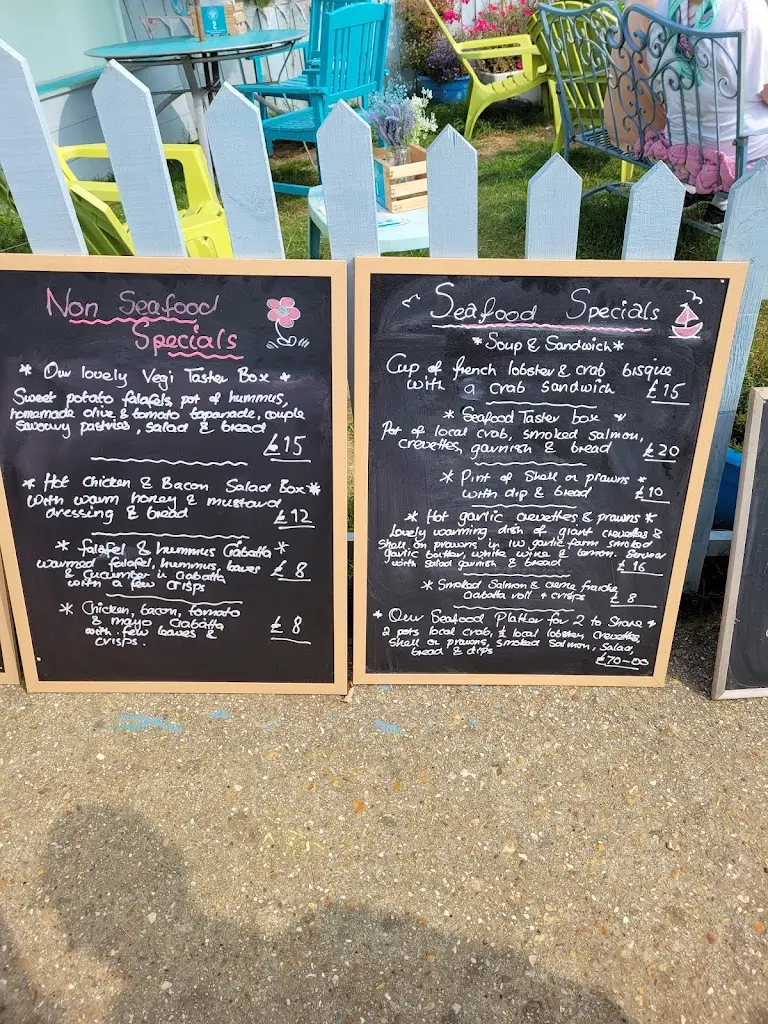 Non Seafood
Specials
* Our lovely Vegi Taster Box *
Sweet potato falafels, pot of hummus,
homemade olive & tomato tapanade, couple
savoury pastries, salad & bread
£15
* Hot Chicken & Bacon Salad Box *
with warm honey & mustard
dressing & bread
£12
* falafel & hummus Ciabatta *
warmed falafel, hummus, leaves
& cucumber in Ciabatta
with a few crisps
£8
* Chicken, bacon, tomato
& mayo Ciabatta
with few leaves &
crisps.
£8
Seafood Specials
*Soup & Sandwich*
Cup of french lobster & crab bisque
with a crab sandwich £15
* Seafood Taster box *
Pot of local crab, smoked salmon,
crevettes, garnish & bread £20
* Pint of Shell on prawns *
with dip & bread £10
* Hot garlic crevettes & prawns *
Lovely warming dish of giant crevettes &
shell on prawns in IW garlic farm smoked
garlic butter, white wine & lemon. Served
with salad garnish & bread £16
* Smoked Salmon & creme fraiche
Ciabatta roll + crisps £8
* Our Seafood Platter for 2 to Share *
2 pots local crab, ½ local lobster, crevettes,
shell on prawns, smoked salmon, salad,
bread & dips
£70-00